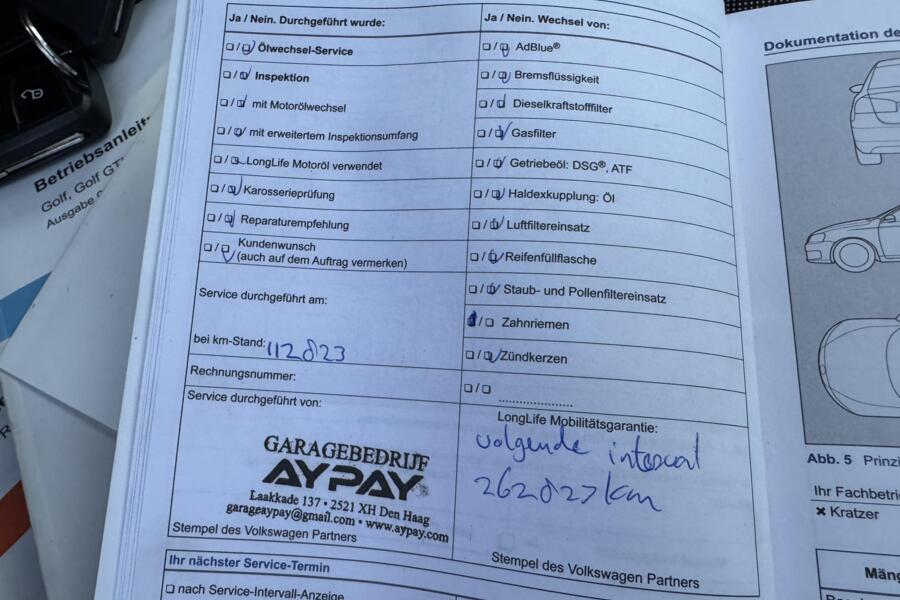 Ja / Nein. Durchgeführt wurde:
Ölwechsel-Service
Inspektion
mit Motorölwechsel
mit erweitertem Inspektionsumfang
LongLife Motoröl verwendet
Karosserieprüfung
Reparaturempfehlung
Kundenwunsch
(auch auf dem Auftrag vermerken)
Service durchgeführt am:
bei km-Stand: 112823
Rechnungsnummer:
Service durchgeführt von:
GARAGEBEDRIJF
AYPAY
Laakkade 137 • 2521 XH Den Haag
garageaypay@gmail.com • www.aypay.com
Stempel des Volkswagen Partners
Ihr nächster Service-Termin
nach Service-Intervall-Anzeige
Ja / Nein. Wechsel von:
AdBlue®
Bremsflüssigkeit
Dieselkraftstofffilter
Gasfilter
Getriebeöl: DSG®, ATF
Haldexkupplung: Öl
Luftfiltereinsatz
Reifenfüllflasche
Staub- und Pollenfiltereinsatz
Zahnriemen
Zündkerzen
LongLife Mobilitätsgarantie:
volgende interval
262827 km
Stempel des Volkswagen Partners
Dokumentation de
Abb. 5 Prinzi
Ihr Fachbetri
× Kratzer
Mäng
Betriebsanleit
Golf, Golf GT
Ausgabe